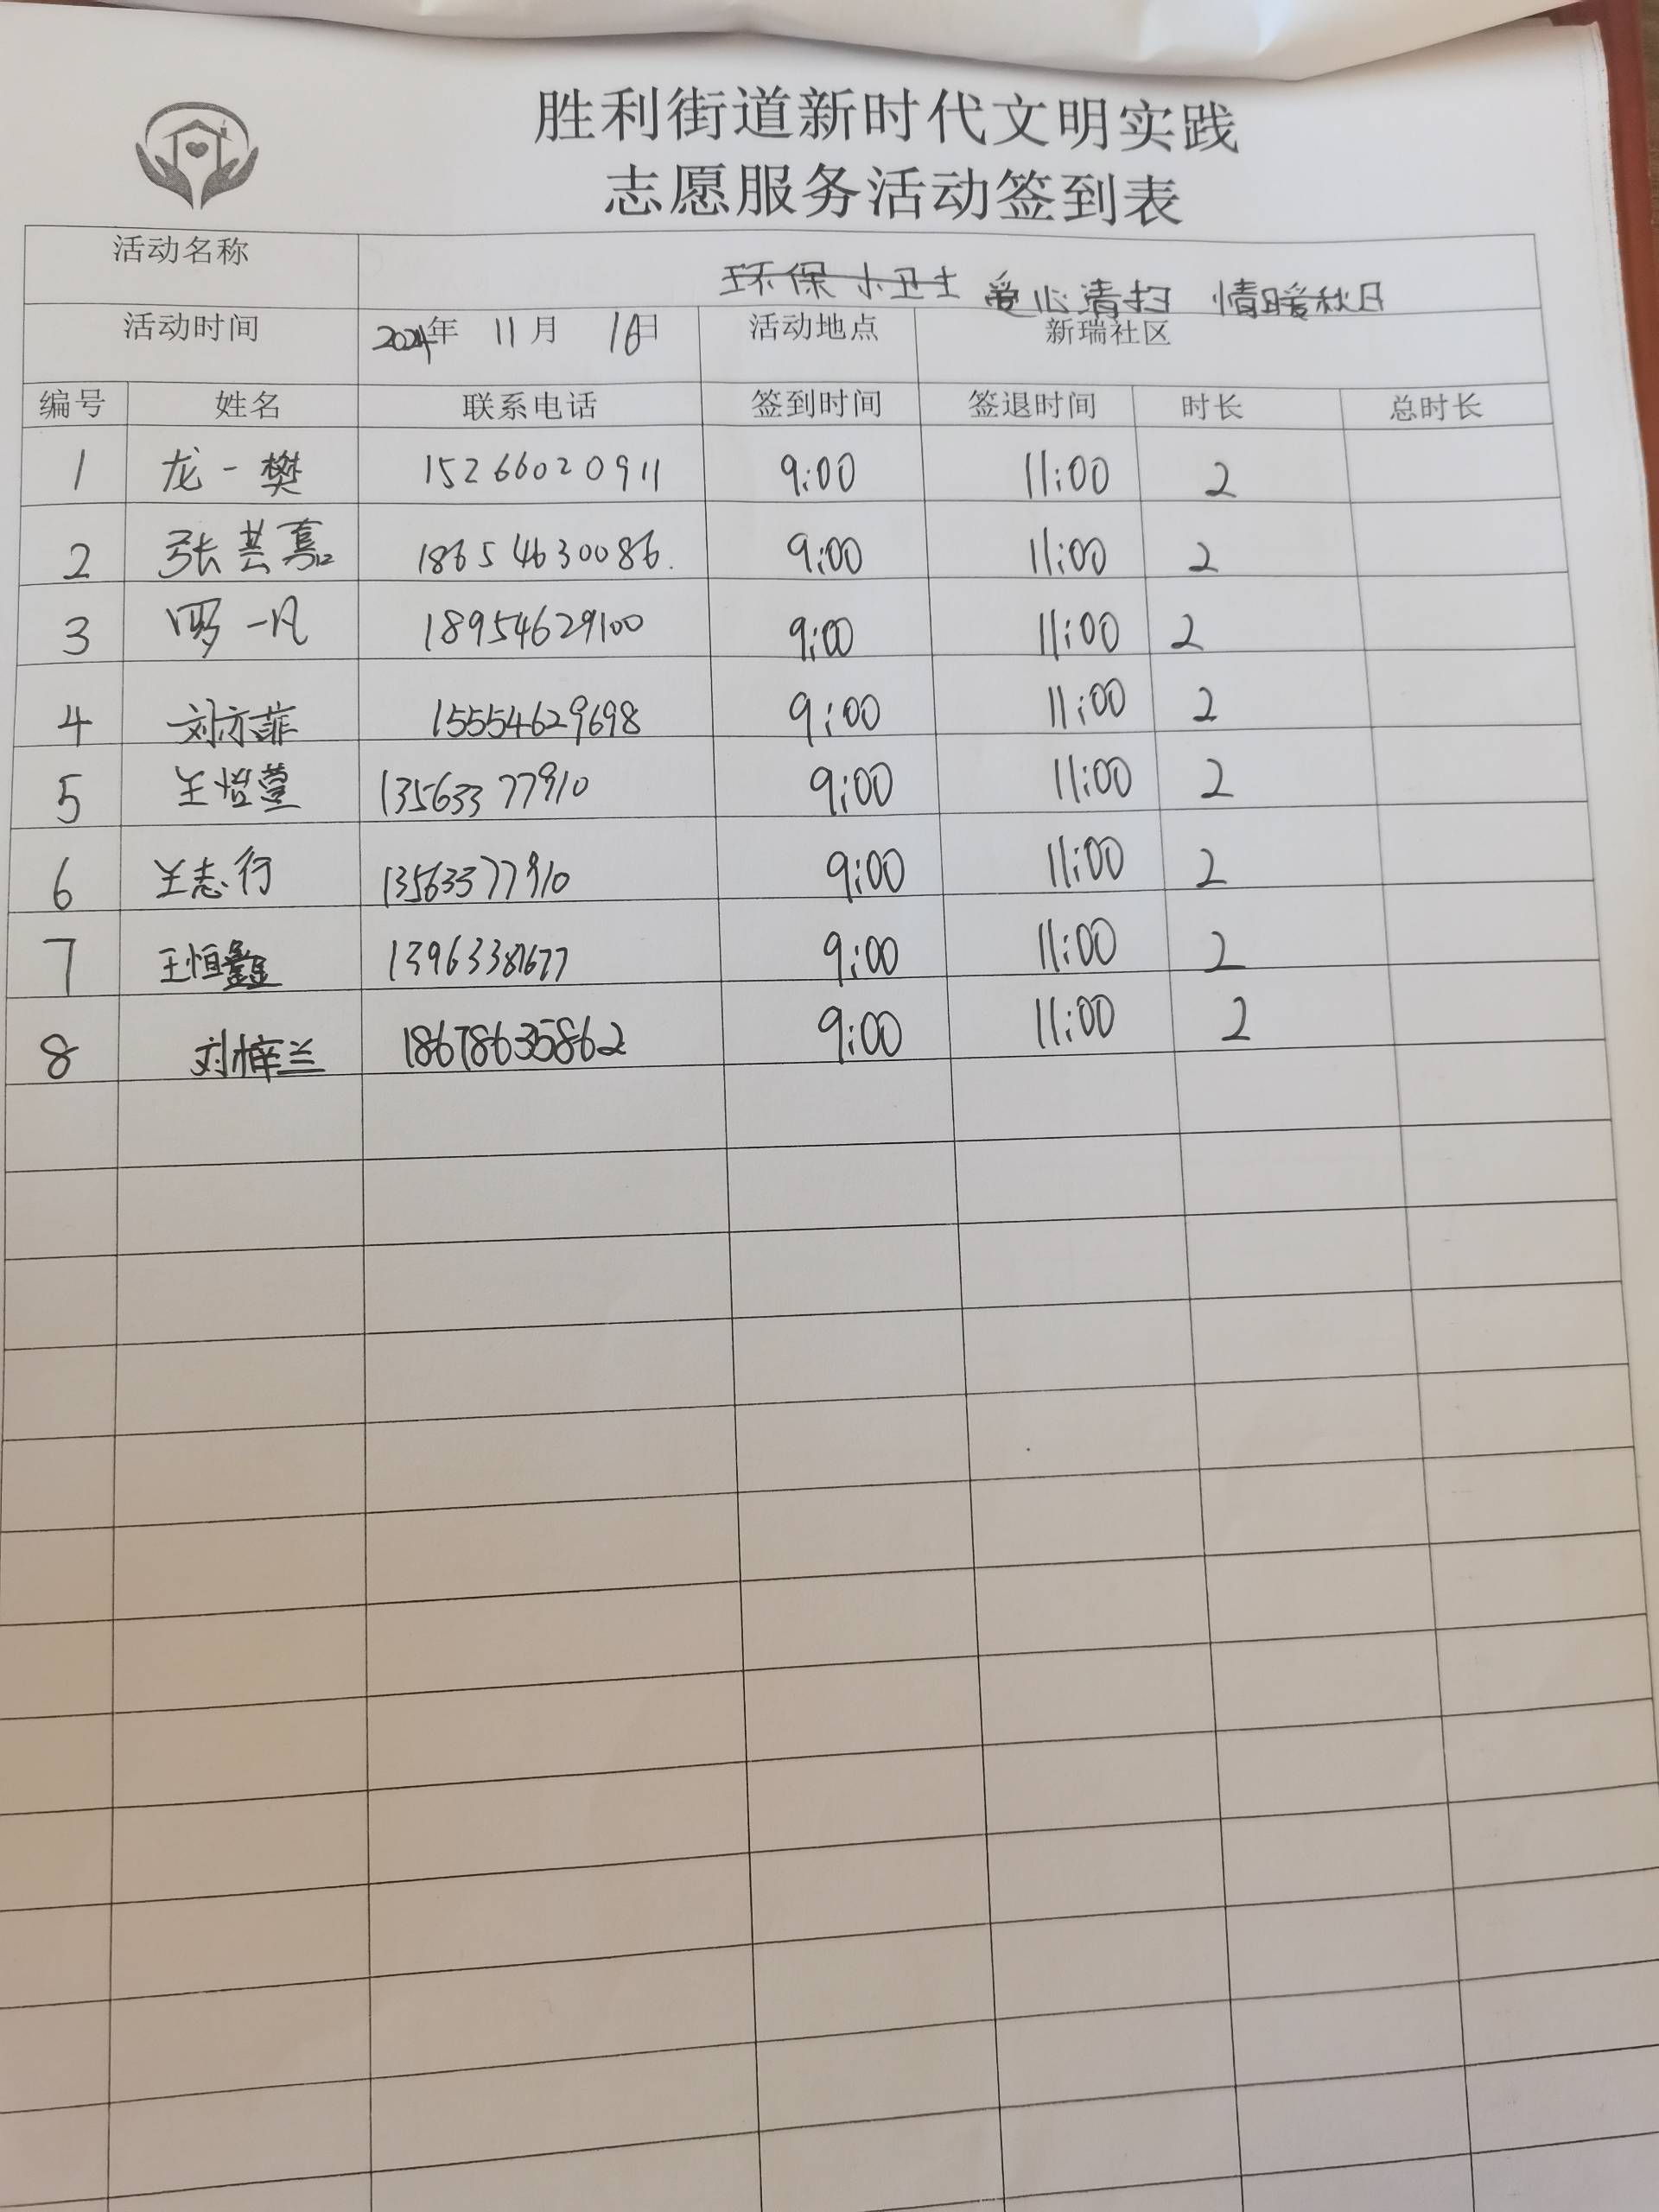 胜利街道新时代文明实践
志愿服务活动签到表
活动名称 环保小卫士 爱心清扫 情暖秋日
活动时间 2024年 11月 16日 活动地点 新瑞社区
编号 姓名 联系电话 签到时间 签退时间 时长 总时长
1 龙一樊 15266020911 9:00 11:00 2
2 张芸嘉 18654630086. 9:00 11:00 2
3 罗一凡 18954629100 9:00 11:00 2
4 刘亦菲 15554629698 9:00 11:00 2
5 王怡萱 13563377910 9:00 11:00 2
6 王志行 13563377910 9:00 11:00 2
7 王恒鑫 13963387677 9:00 11:00 2
8 刘梓兰 18678635862 9:00 11:00 2